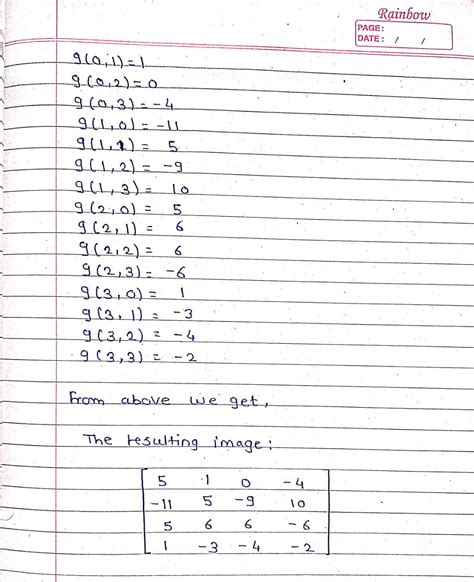 Rainbow
PAGE:
DATE: / /
g(0,1)=1
g(0,2)=0
g(0,3)=-4
g(1,0)=-11
g(1,1)= 5
g(1,2)= -9
g(1,3)= 10
g(2,0)= 5
g(2,1)= 6
g(2,2)= 6
g(2,3)= -6
g(3,0)= 1
g(3,1)= -3
g(3,2)= -4
g(3,3)= -2
From above we get,
The resulting image:
5 1 0 -4
-11 5 -9 10
5 6 6 -6
1 -3 -4 -2